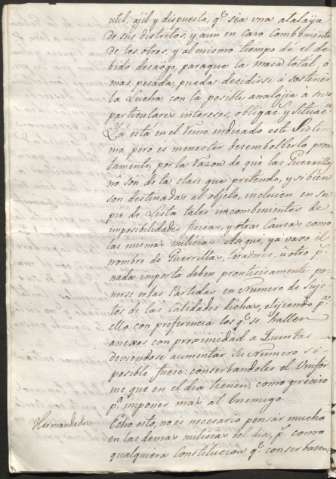 util, agil y dispuesta, qe. sea una atalaya
de sus distritos, y aun en caso
de las otras, y al mismo tiempo de el de
bido desaogo, para que la masa total, o
mas pesada, puedas decidirse a sostener
la Lucha con la posible analogia a sus
particulares intereses, obligac. y
Ya esta en el Reino indicado este
ma pero es menester desembolverlo pron
tamente, por la razon de que las Guerrillas
no son de la clase que pretendo, y si bien
son destinadas al objeto, incluien en su
pie de Lista tales
imposibilidades fisicas, y otras causas como
las mismas milicias. Asi que, ya vajo el
nombre de Guerrillas, u otro pr.
nada importa deben prontisimamente po
nerse estas Partidas, en Numero de Suge
tos de las Calidades dichas, eligiendo pa.
ello con preferencia los qe. se hallen
con proximidad a Quinta
deviendose aumentar su Numero si
posible fuese: conserbandoles el Unifor
me que en el dia tienen, como
pa. imponer mas al Enemigo.
Hermandades Echo esto, no es necesario pensar mucho
en las demas milicias del dia, pr. como
qualquiera Constitucion qe. conserbasen